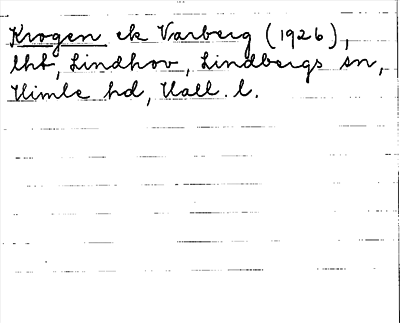 Krogen ek Varberg (1926),
lht, Lindhov, Lindbergs sn,
Himle hd, Hall. l.